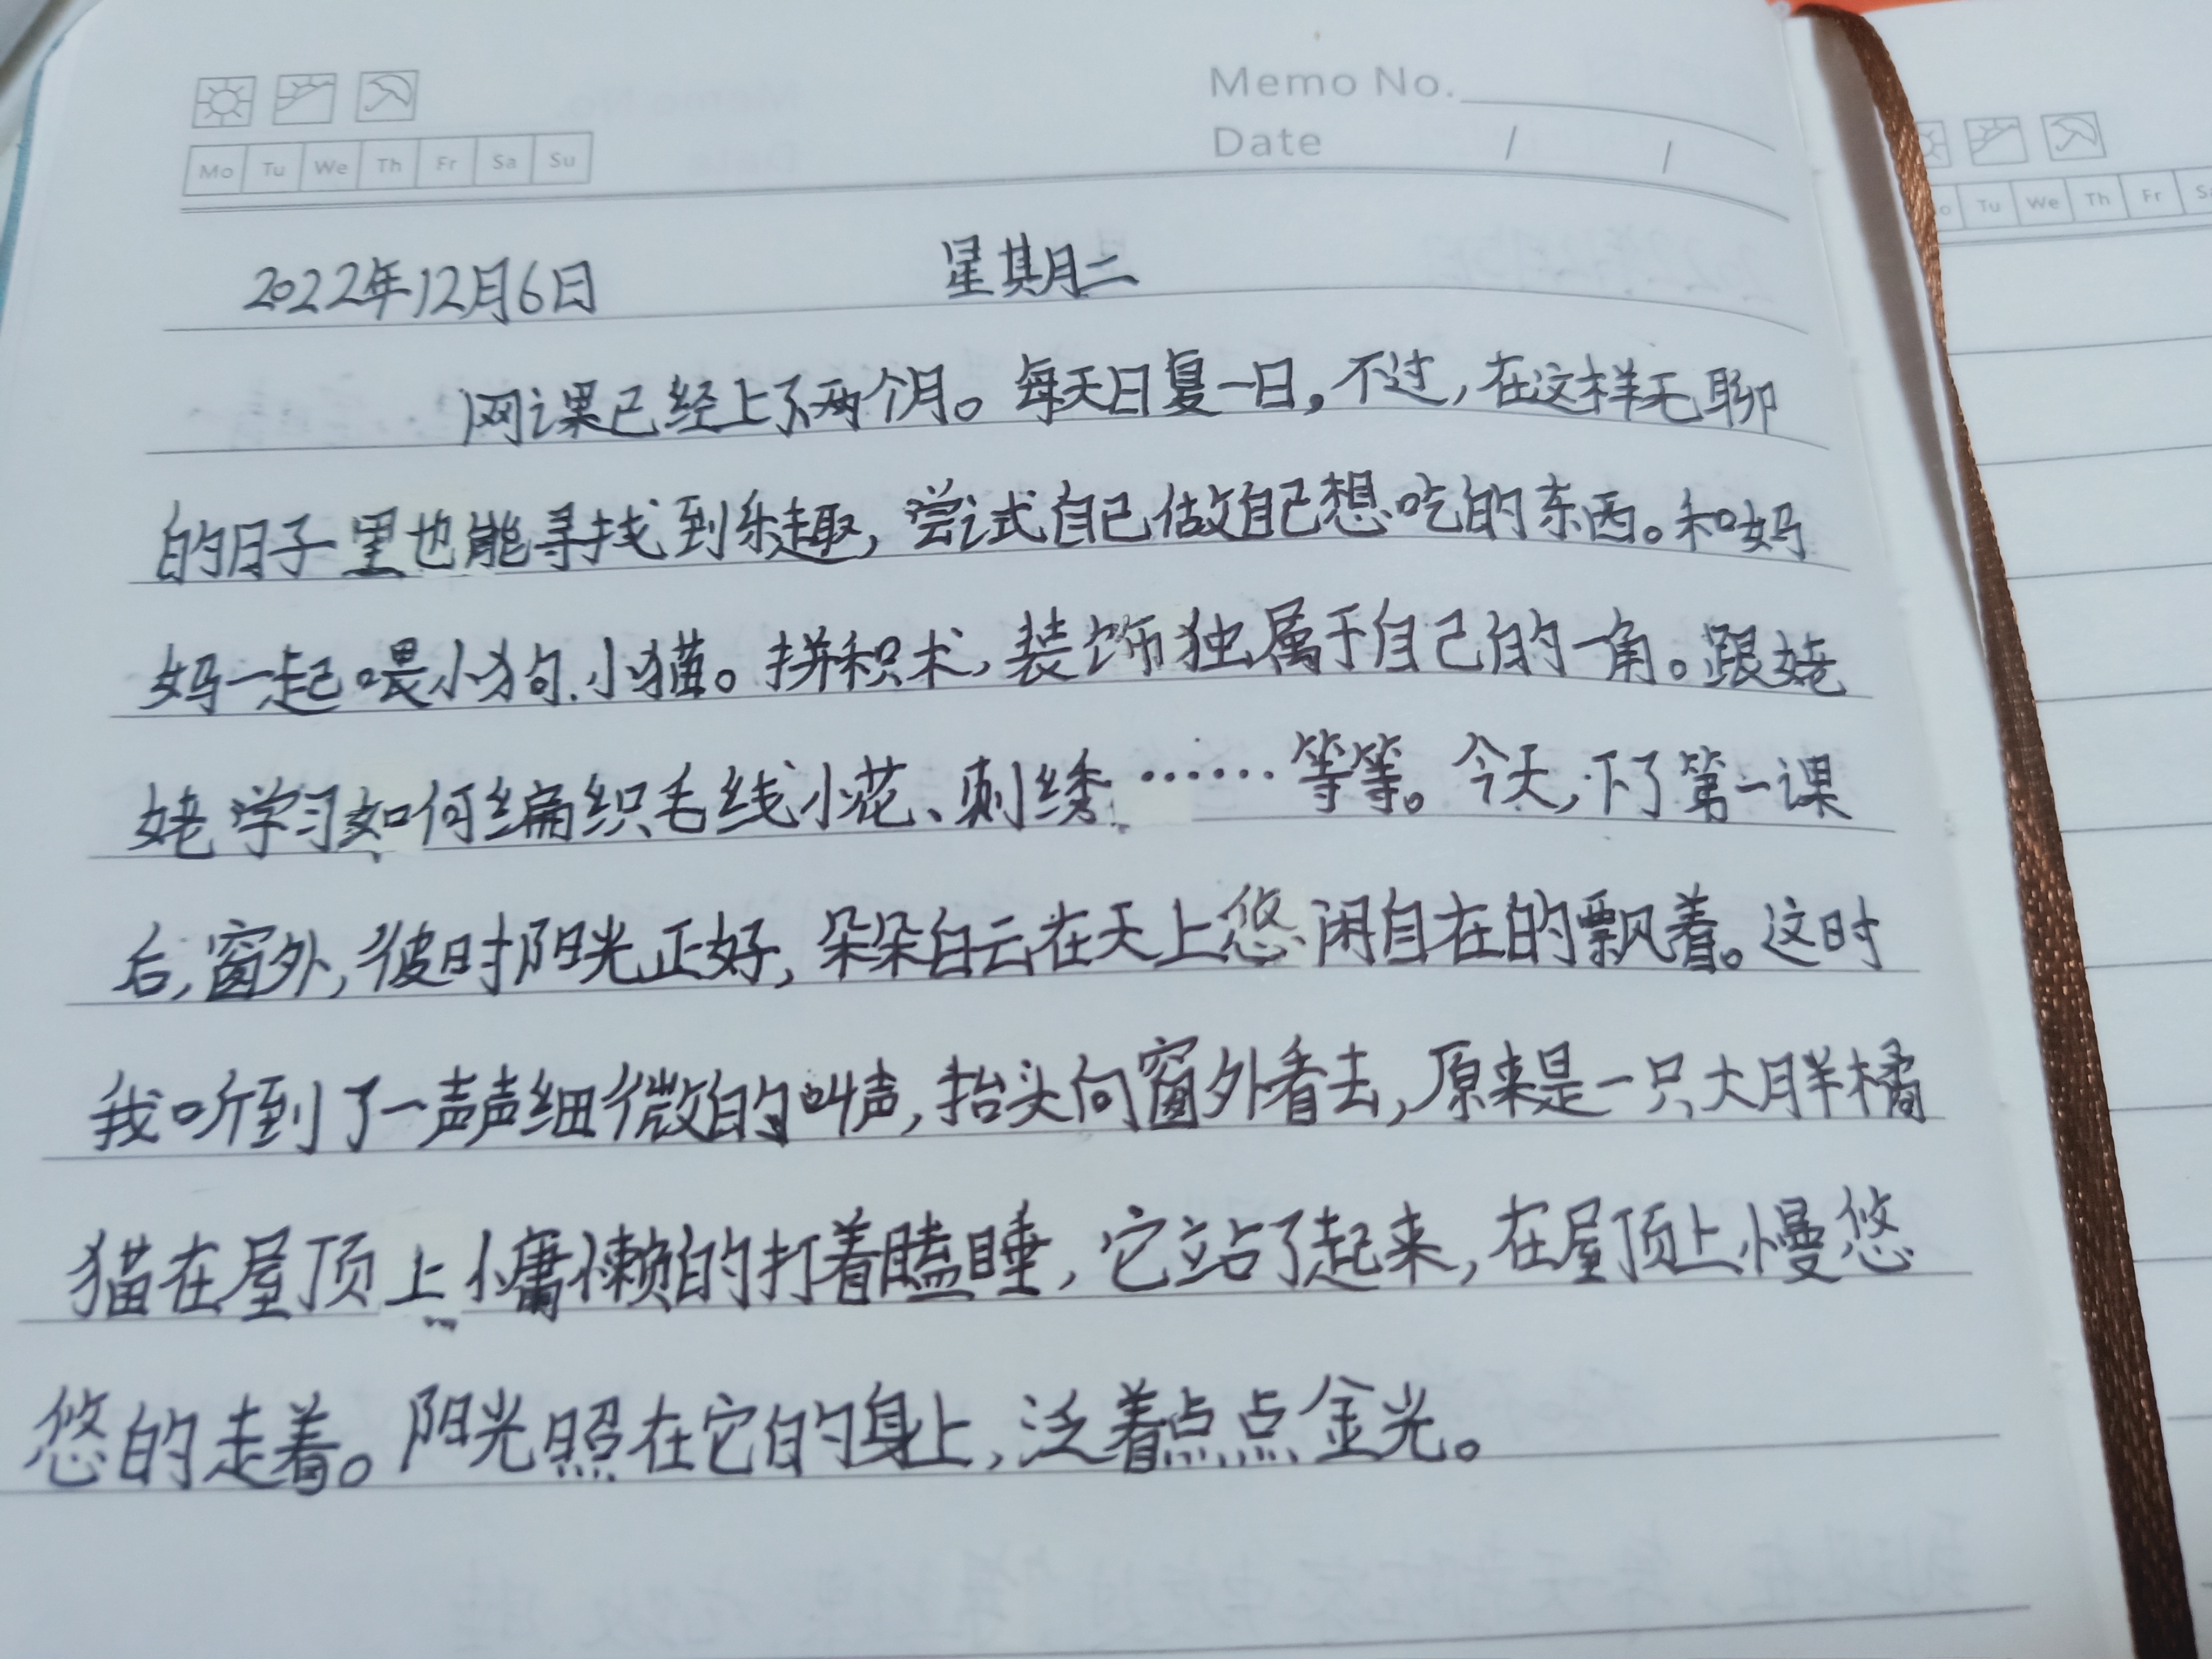 Memo No.
Mo Tu We Th Fr Sa Su
Date / /
2022年12月6日 星期二
网课已经上了两个月。每天日复一日,不过,在这样无聊
的日子里也能寻找到乐趣,尝试自己做自己想吃的东西。和妈
妈一起喂小狗、小猫。拼积木,装饰独属于自己的一角。跟姥
姥学习如何编织毛线小花、刺绣……等等。今天,下了第一课
后,窗外,彼时阳光正好,朵朵白云在天上悠闲自在的飘着。这时
我听到了一声声细微的叫声,抬头向窗外看去,原来是一只大胖橘
猫在屋顶上慵懒的打着瞌睡,它站了起来,在屋顶上慢悠
悠的走着。阳光照在它的身上,泛着点点金光。
Tu We Th Fr